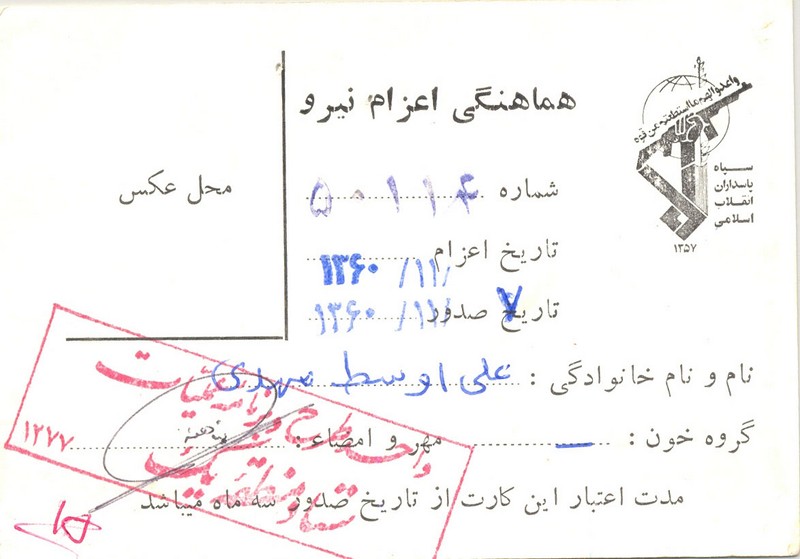 هماهنگی اعزام نیرو
واعدوا لهم مااستطعتم من قوة
سپاه
پاسداران
انقلاب
اسلامی
۱۳۵۷
محل عکس
شماره ۵۰۱۱۴
تاریخ اعزام ۱۳۶۰/۱۱/
تاریخ صدور ۱۳۶۰/۱۱/ ۷
نام و نام خانوادگی : علی اوسط مهدی
گروه خون : — مهر و امضاء :
مدت اعتبار این کارت از تاریخ صدور سه ماه میباشد
واحد طرح و عملیات
ستاد منطقه یک
۱۲۷۷